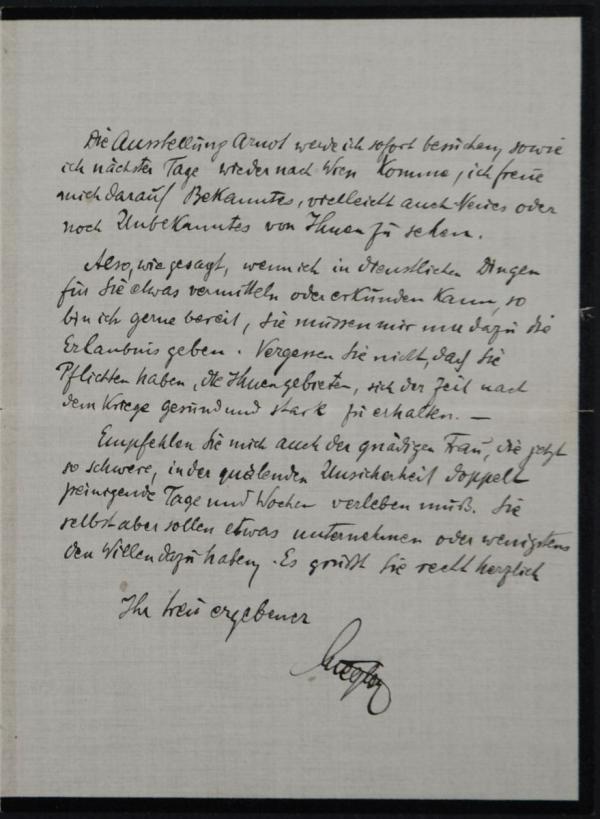 Die Ausstellung Arnot werde ich sofort besuchen, sowie
ich nächster Tage wieder nach Wien komme, ich freue
mich darauf Bekanntes, vielleicht auch Neues oder
noch Unbekanntes von Ihnen zu sehen.
Also, wie gesagt, wenn ich in dienstlichen Dingen
für Sie etwas vermitteln oder erkunden kann, so
bin ich gerne bereit, Sie müssen mir nur dazu die
Erlaubnis geben. Vergessen Sie nicht, daß Sie
Pflichten haben, die Ihnen gebieten, sich der Zeit nach
dem Kriege gesund und stark zu erhalten. —
Empfehlen Sie mich auch der gnädigen Frau, die jetzt
so schwere, in der quälenden Unsicherheit doppelt
peinigende Tage und Wochen verleben muß. Sie
selbst aber sollen etwas unternehmen oder wenigstens
den Willen dazu haben. Es grüßt Sie recht herzlich
Ihr treu ergebener